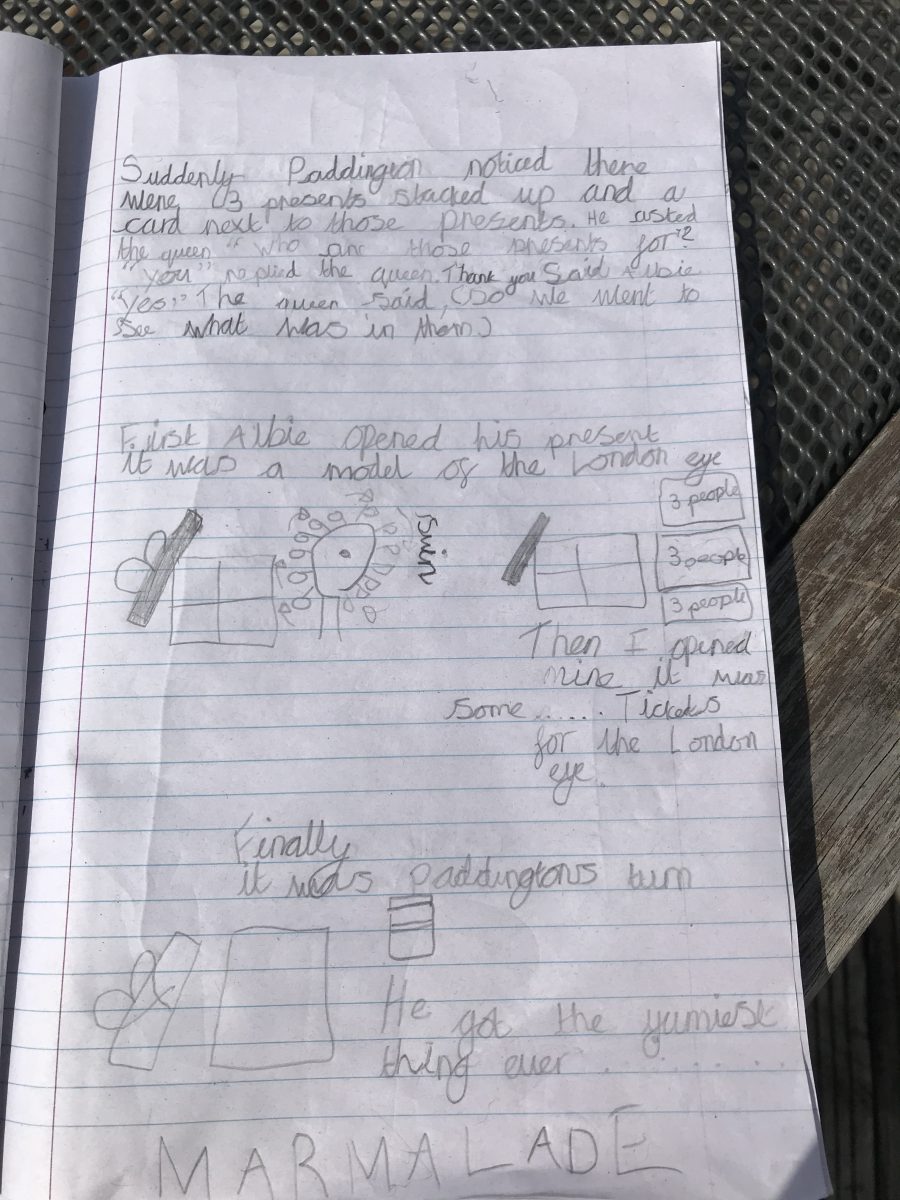 Suddenly Paddington noticed there
were 3 presents stacked up and a
card next to those presents. He asked
the queen "who are those presents for"?
"you" replied the queen. Thank you Said Albie
"Yes," The queen said, (So we went to
see what was in them)
First Albie opened his present
it was a model of the London eye
3 people
3 people
3 people
Then I opened
mine it was
Some ...... Tickets
for the London
eye.
Finally
it was Paddingtons turn
He got the yumiest
thing ever ........
MARMALADE